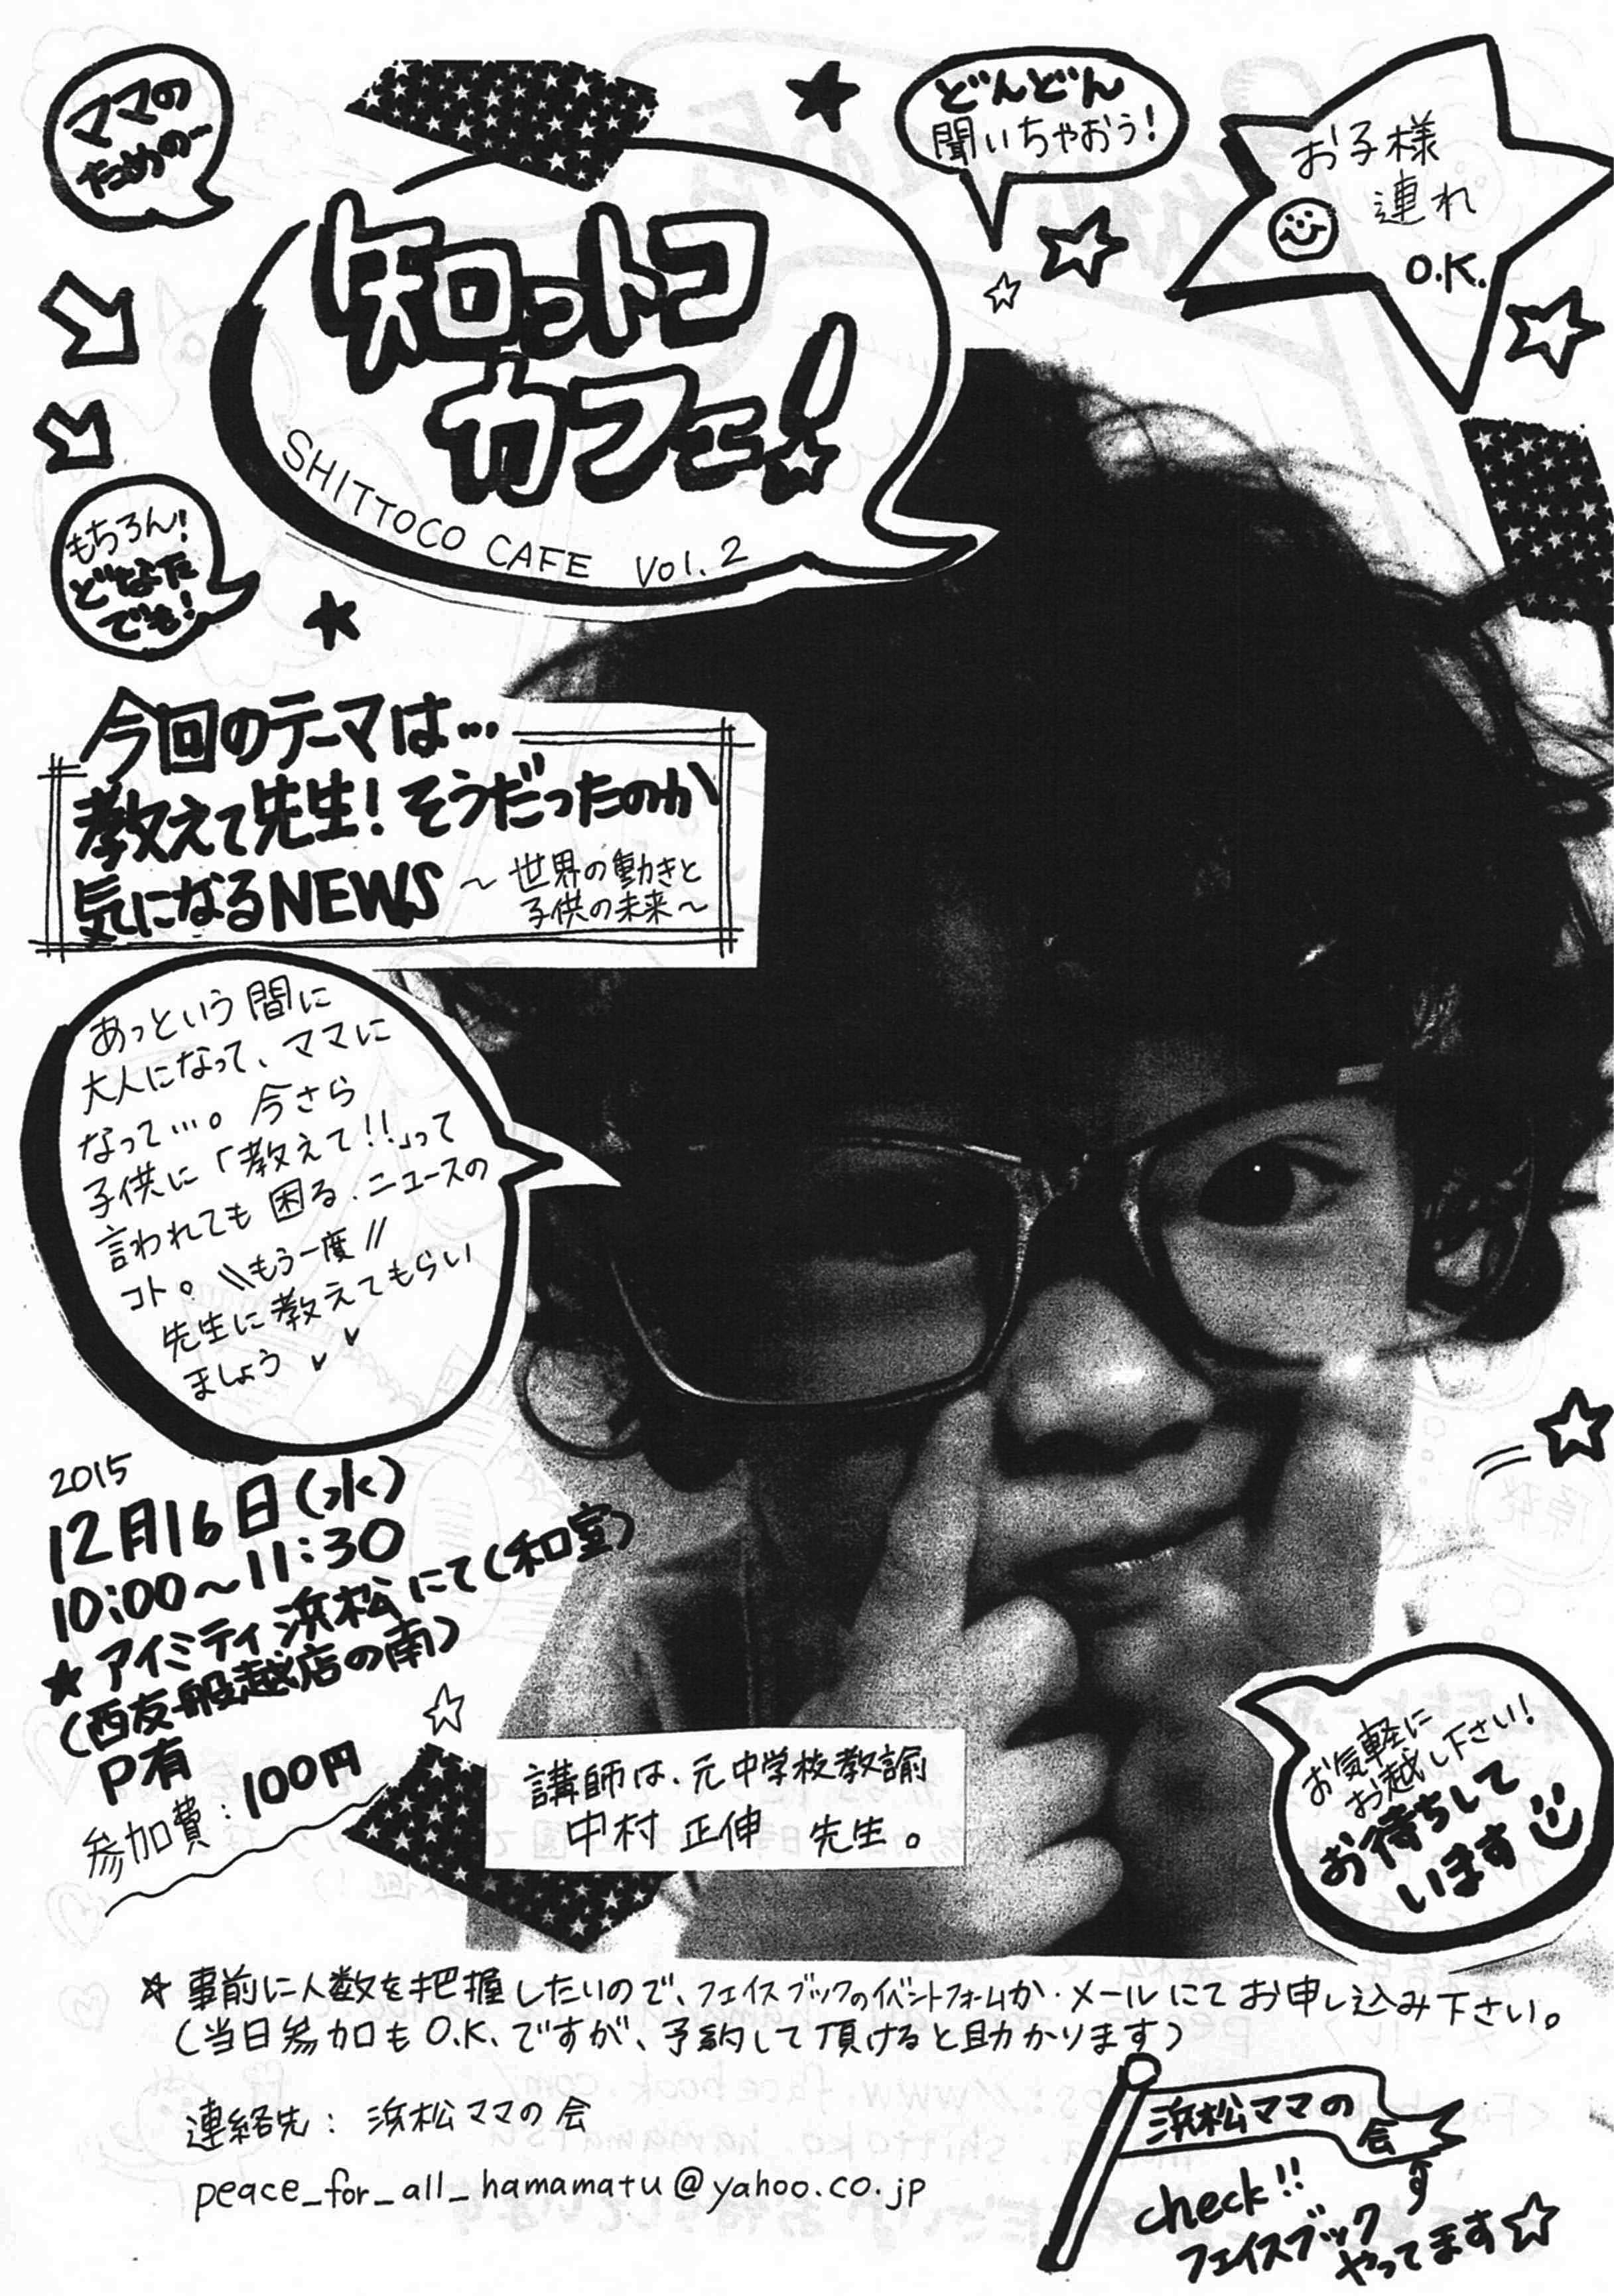 ママの
ための…
知っトコ
カフェ!
SHITTOCO CAFE Vol.2
どんどん
聞いちゃおう!
お子様
連れ
O.K.
もちろん!
どなた
でも!
今回のテーマは…
教えて先生!そうだったのか
気になるNEWS 〜世界の動きと
子供の未来〜
あっという間に
大人になって、ママに
なって…。今さら
子供に「教えて!!」って
言われても困る、ニュースの
コト。\\もう一度//
先生に教えてもらい
ましょう
2015
12月16日(水)
10:00〜11:30
★アイミティ浜松にて(和室)
(西友般越店の南)
P有
参加費:100円
講師は、元中学校教諭
中村 正伸 先生。
お気軽に
お越し下さい!
お待ちして
います
☆事前に人数を把握したいので、フェイスブックのイベントフォームか・メールにてお申し込み下さい。
(当日参加もO.K.ですが、予約して頂けると助かります)
連絡先: 浜松ママの会
peace_for_all_hamamatu@yahoo.co.jp
浜松ママの
会
check!!
フェイスブック
やってます☆